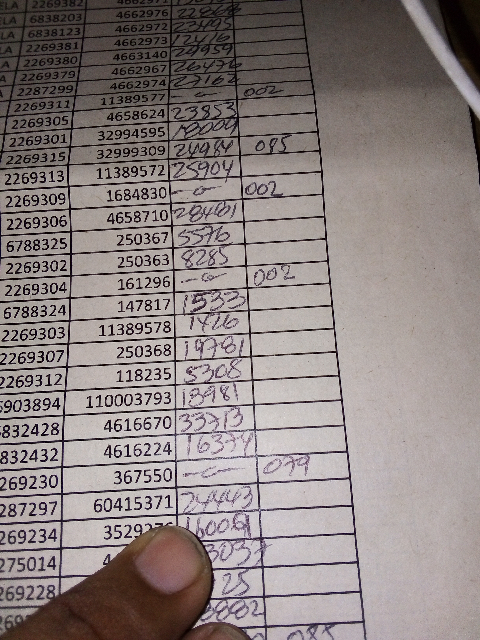 2269382
6838203 4662976
LA 6838123 4662972 22495
LA 2269381 4662973 12416
2269380 4663140 24959
2269379 4662967 26476
2287299 4662974 27162
2269311 11389577 -- 002
2269305 4658624 23853
2269301 32994595 18009
2269315 32999309 24984 085
2269313 11389572 25904
2269309 1684830 -- 002
2269306 4658710 28481
6788325 250367 5576
2269302 250363 8285
2269304 161296 -- 002
6788324 147817 1533
2269303 11389578 1426
2269307 250368 19781
2269312 118235 5308
5903894 110003793 13981
832428 4616670 33713
832432 4616224 16374
269230 367550 -- 079
287297 60415371 24443
269234 3529
275014 4 3037
269228 25
269 3882
085